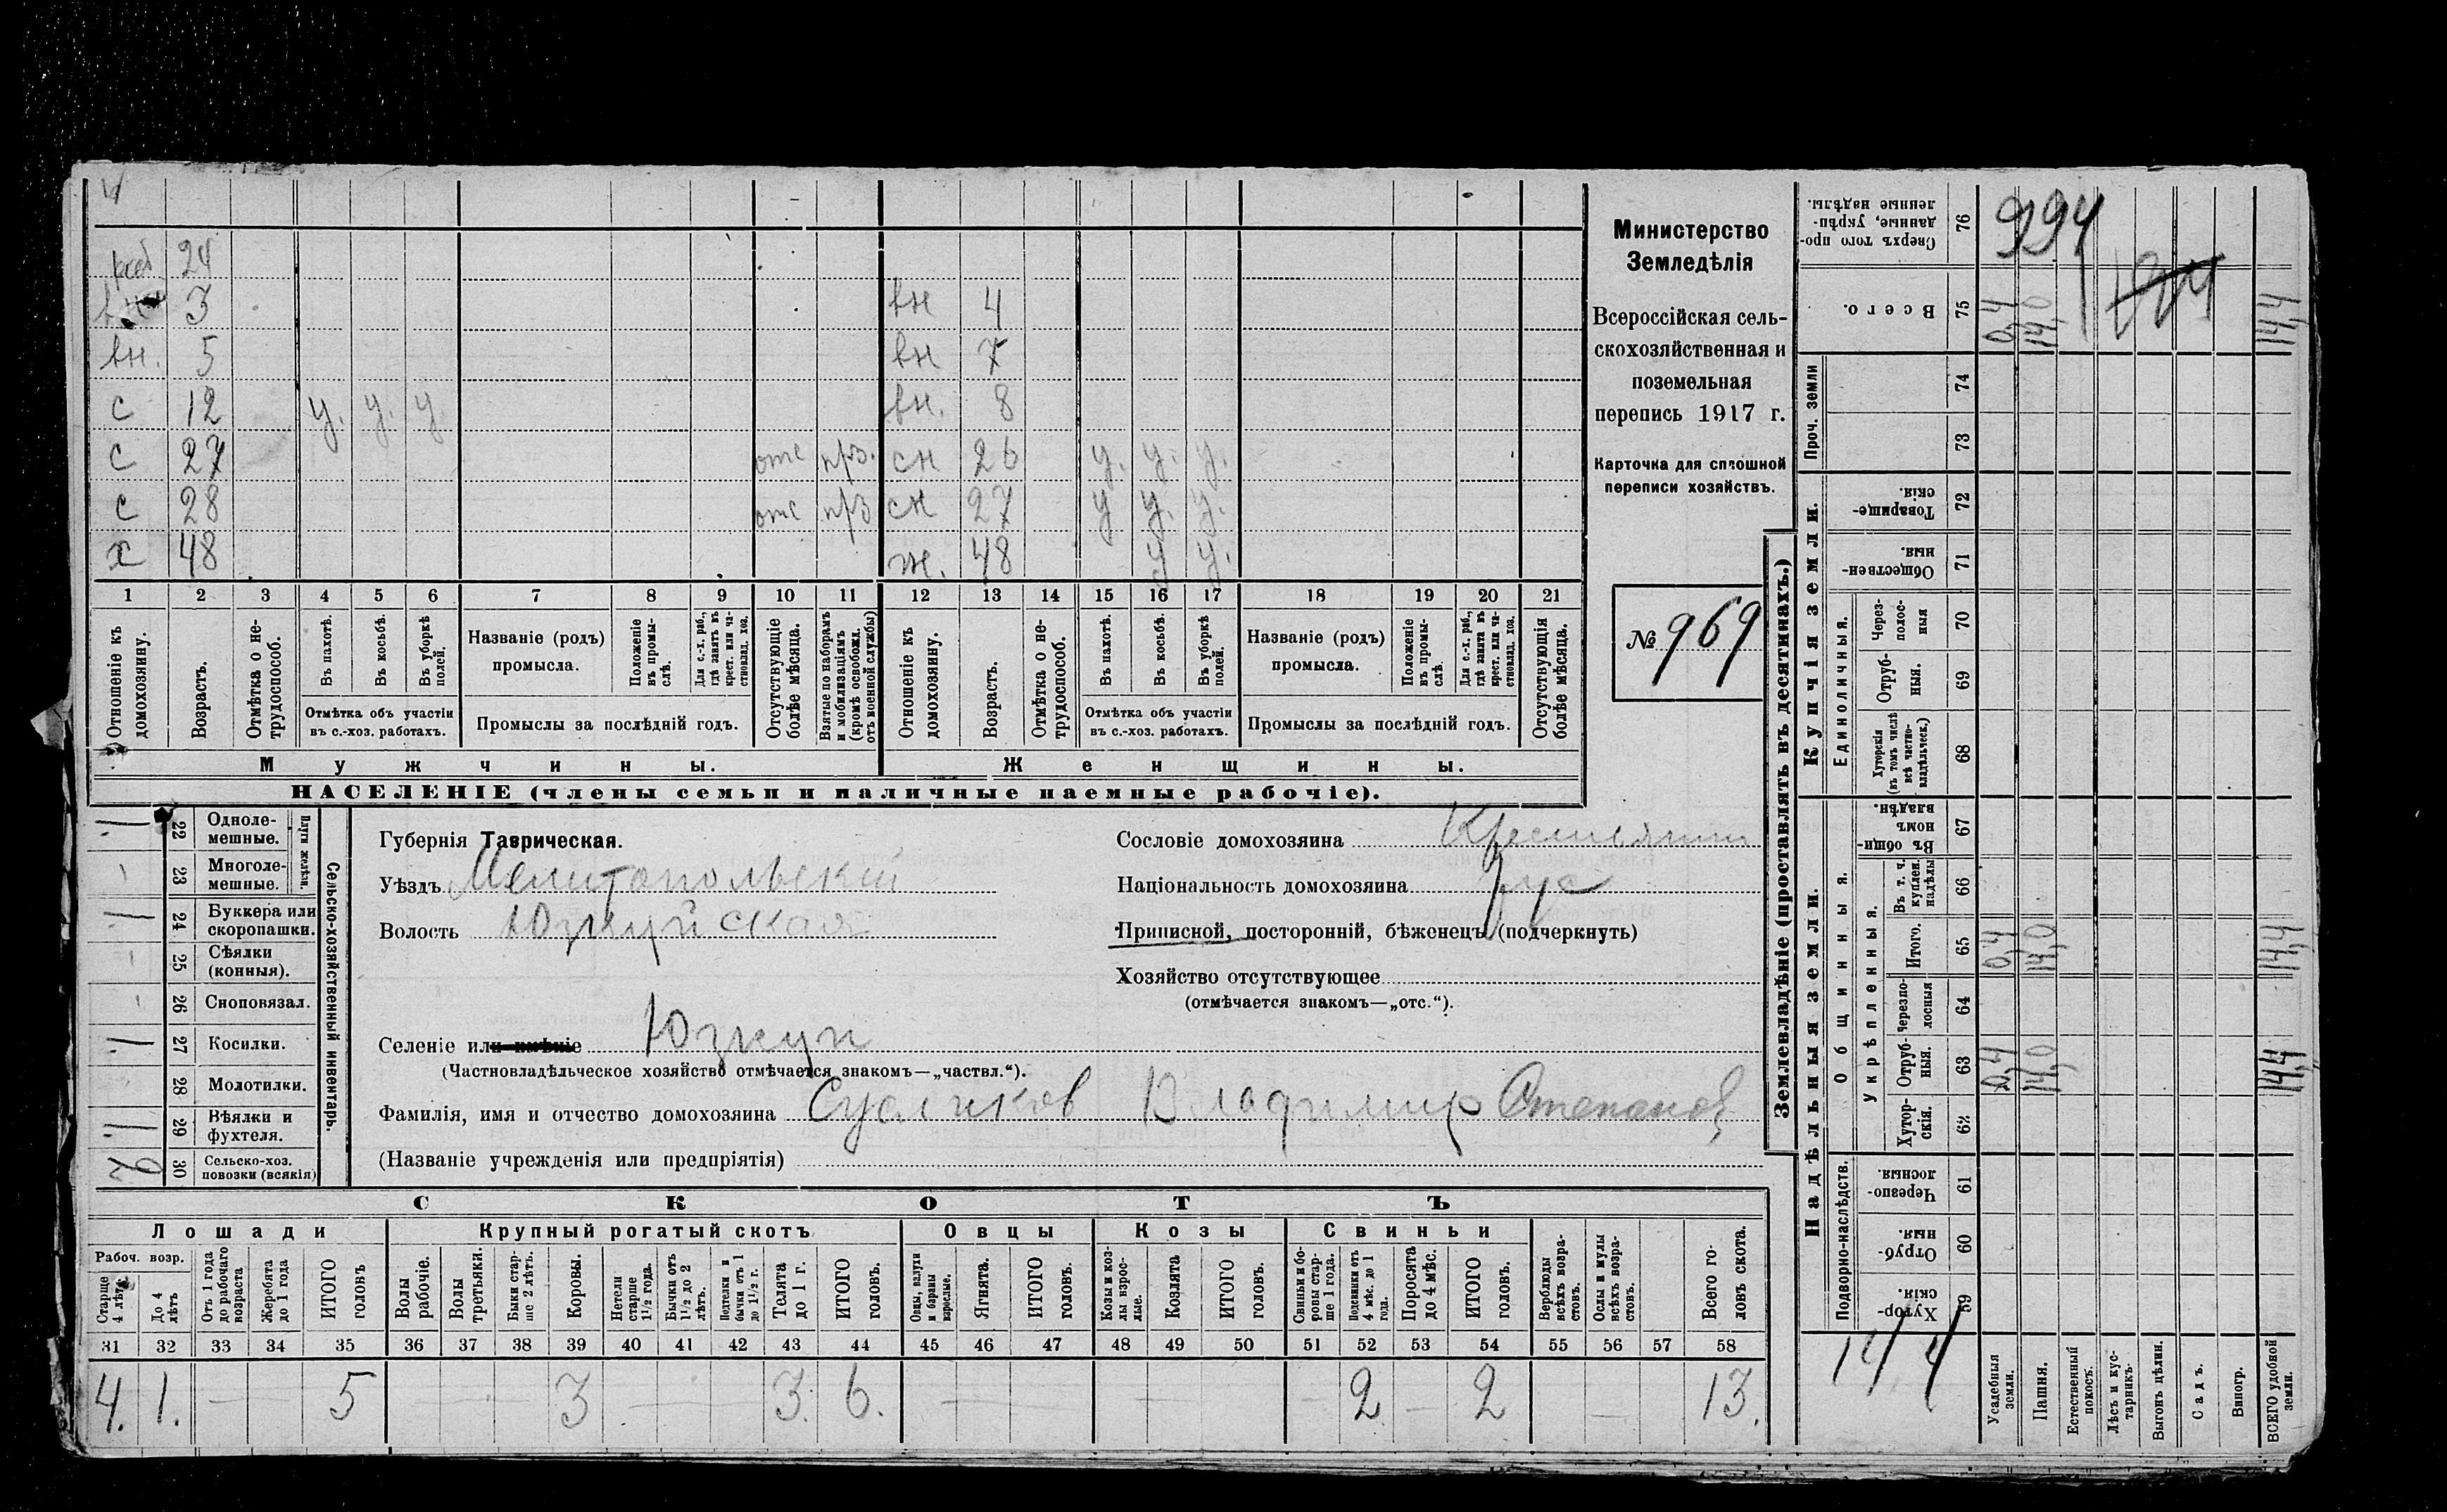 4
раб 24
3 вн 4
вн. 5 вн 7
с 12 у. у. у вн. 8
с 27 отс прз. сн 26 у. у. у.
с 28 отс прз сн 27 у у. у.
х 48 ж. 48 у у.
1 2 3 4 5 6 7 8 9 10 11 12 13 14 15 16 17 18 19 20 21
Отношеніе къ домохозяину.
Возрастъ.
Отмѣтка о не-трудоспособ.
Въ пахотѣ.
Въ косьбѣ.
Въ уборкѣ полей.
Отмѣтка объ участіи
въ с.-хоз. работахъ.
Названіе (родъ)
промысла.
Положеніе въ промы-слѣ.
Для с.-х. раб., гдѣ занятъ въ крест. или ча-стновлад. хоз.
Промыслы за послѣдній годъ.
Отсутствующіе болѣе мѣсяца.
Взятые по наборамъ и мобилизаціямъ (кромѣ освобожд. отъ военной службы)
Отношеніе къ домохозяину.
Возрастъ.
Отмѣтка о не-трудоспособ.
Въ пахотѣ.
Въ косьбѣ.
Въ уборкѣ полей.
Отмѣтка объ участіи
въ с.-хоз. работахъ.
Названіе (родъ)
промысла.
Положеніе въ промы-слѣ.
Для с.-х. раб., гдѣ занята въ крест. или ча-стновлад. хоз.
Промыслы за послѣдній годъ.
Отсутствующія болѣе мѣсяца.
Мужчины. Женщины.
НАСЕЛЕНІЕ (члены семьи и наличные наемные рабочіе).
Министерство
Земледѣлія
Всероссійская сель-
скохозяйственная и
поземельная
перепись 1917 г.
Карточка для сплошной
переписи хозяйствъ.
№ 969
Сельско-хозяйственный инвентарь.
Плуги желѣзн.
1 22 Одноле-мешные.
23 Многоле-мешные.
1 24 Буккера или скоропашки.
25 Сѣялки (конныя).
26 Сноповязал.
1 27 Косилки.
28 Молотилки.
1 29 Вѣялки и фухтеля.
30 Сельско-хоз. повозки (всякія)
Губернія Таврическая.
Уѣздъ Мелитопольскій
Волость Юзкуйская
Сословіе домохозяина Крестьянин
Національность домохозяина рус
Приписной, посторонній, бѣженецъ (подчеркнуть)
Хозяйство отсутствующее
(отмѣчается знакомъ—„отс.“).
Селеніе или имѣніе Юзкуи
(Частновладѣльческое хозяйство отмѣчается знакомъ—„частвл.“).
Фамилія, имя и отчество домохозяина Владимир Степанов
(Названіе учрежденія или предпріятія)
СКОТЪ
Лошади Крупный рогатый скотъ Овцы Козы Свиньи
Рабоч. возр.
Старше 4 лѣтъ
До 4 лѣтъ
Отъ 1 года до рабочаго возраста
Жеребята до 1 года
ИТОГО головъ
Волы рабочіе.
Волы третьяки.
Быки стар-ше 2 лѣтъ.
Коровы.
Нетели старше 1½ года.
Бычки отъ 1½ до 2 лѣтъ.
Подтелки и бычки отъ 1 до 1½ г.
Телята до 1 г.
ИТОГО головъ.
Овцы, валухи и бараны взрослые.
Ягнята.
ИТОГО головъ.
Козы и коз-лы взрос-лые.
Козлята
ИТОГО головъ.
Свиньи и бо-ровы стар-ше 1 года.
Подсвинки отъ 4 мѣс. до 1 года.
Поросята до 4 мѣс.
ИТОГО головъ.
Верблюды всѣхъ возра-стовъ.
Ослы и мулы всѣхъ возра-стовъ.
Всего го-ловъ скота.
31 32 33 34 35 36 37 38 39 40 41 42 43 44 45 46 47 48 49 50 51 52 53 54 55 56 57 58
4. 1. — 5 3 — 3. 6. — — 2 — 2 — 13.
Землевладѣніе (проставлять въ десятинахъ.)
Купчія земли.
Надѣльныя земли.
Сверхъ того про-данные, укрѣп-ленные надѣлы. 76 994
Всего. 75 0,4 14,0 14,4
Проч. земли
74
73
Товарище-скія. 72
Обществен-ныя. 71
Единоличныя.
Через-полос-ныя 70
Отруб-ныя. 69
Хуторскія (въ томъ числѣ всѣ частно-владѣльческ.) 68
Общинныя.
Въ общи-номъ владѣн. 67
Укрѣпленныя.
Въ т. ч. куплен. надѣлы 66
Итого. 65 0,4 14,0 14,4
Черезпо-лосныя 64
Отруб-ныя. 63 0,4 14,0 14,4
Хутор-скія. 62
Подворно-наслѣдств.
Черезпо-лосныя 61
Отруб-ныя. 60
Хутор-скія. 59
14/4
Усадебныя земли.
Пашня.
Естественный покосъ.
Лѣсъ и кус-тарникъ.
Выгонъ цѣлин.
Садъ.
Виногр.
ВСЕГО удобной земли.